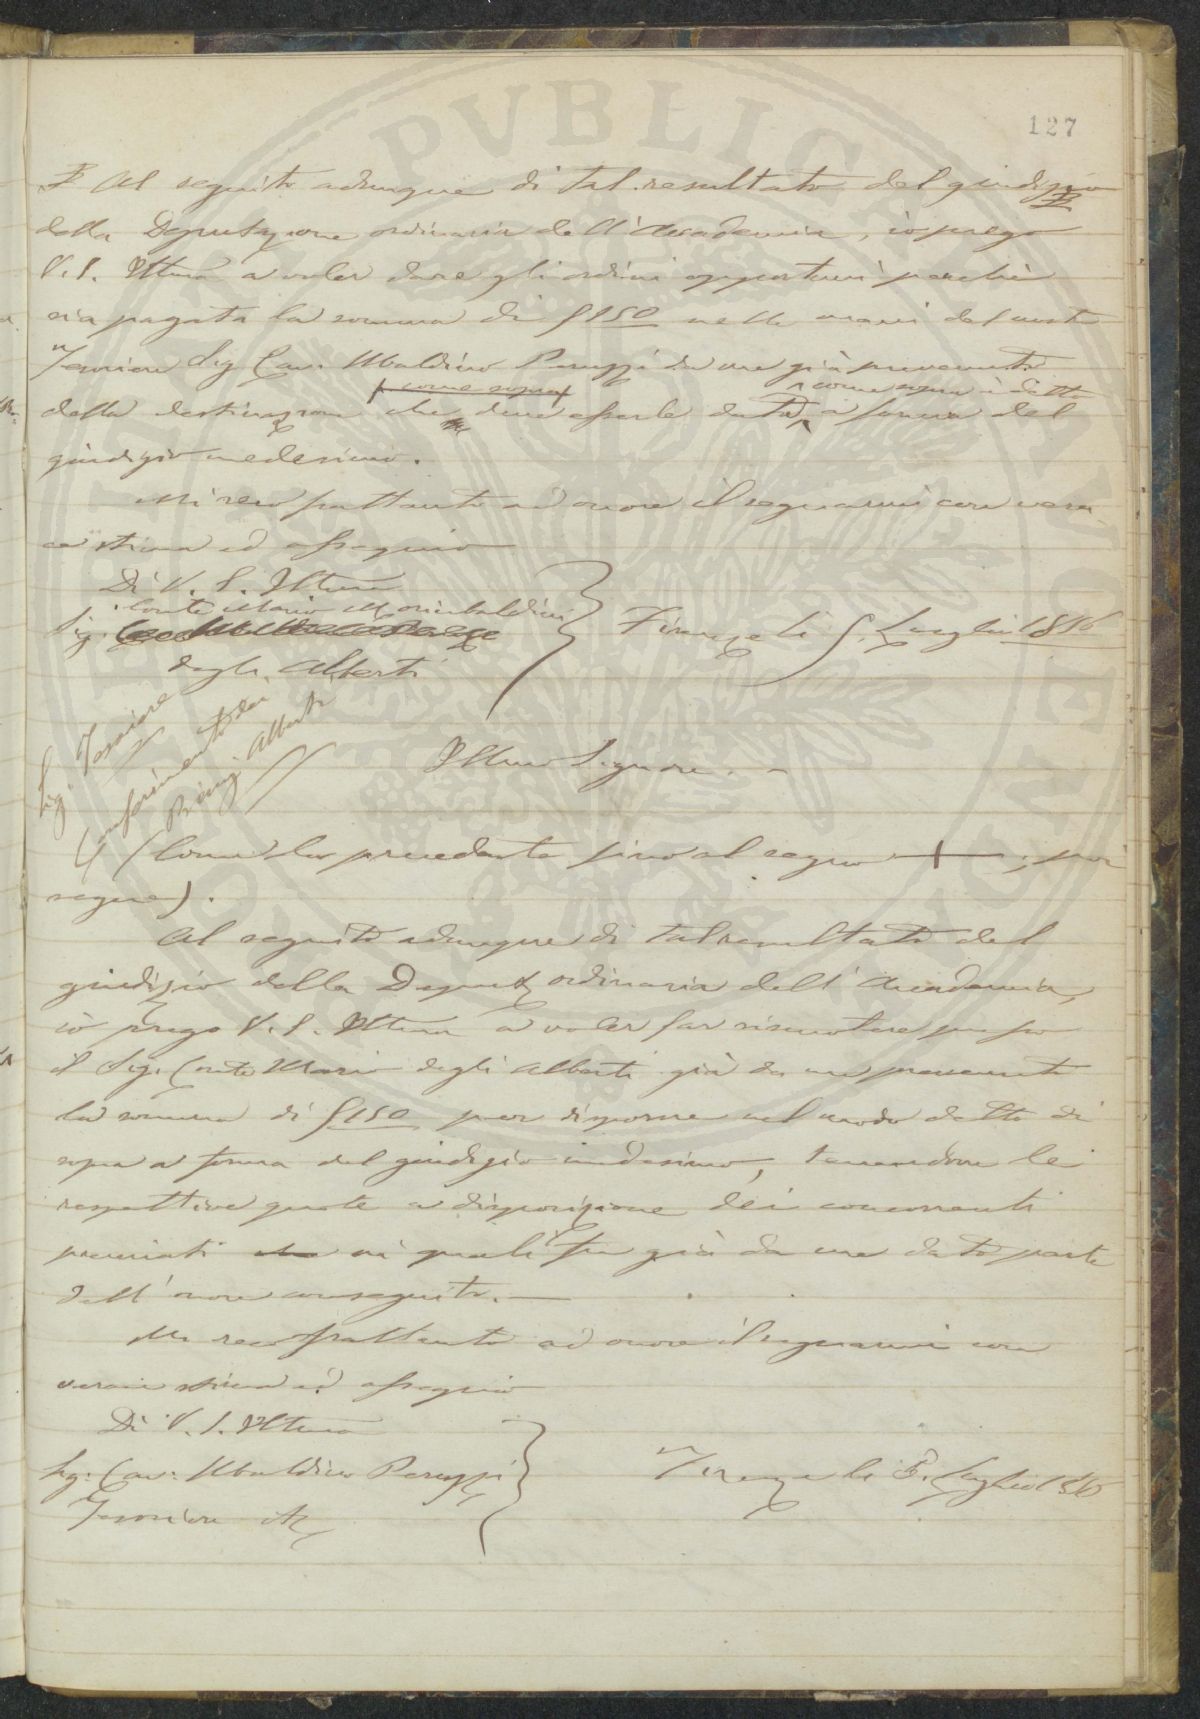 127
Al seguito adunque di tal resultato del giudizio
della Deputazione ordinaria dell'Accademia, io prego
V. S. Illma a voler dare gli ordini opportuni perchè
sia pagata la somma di £150 nelle mani del nostro
Tesoriere Sig Cav. Ubaldino Peruzzi da me già prevenuto
come sopra come sopra è detto
della destinazione che deve esserle data a forma del
giudizio medesimo.
Mi reco frattanto ad onore il segnarmi con vera
ce stima ed ossequio
Di V. S. Illma
Conte Mario Morimbaldini
Sig.
degli Alberti
Firenze li 5. Luglio 1856
Sig. Tesoriere
Conferimento dei
Premj Alberti
Illmo Signore
(Come la precedente fino al segno +; poi
segue).
Al seguito adunque di tal resultato del
giudizio della Deput. ordinaria dell'Accademia,
io prego V. S. Illma a voler far riscuotere presso
il Sig. Conte Mario degli Alberti già da me prevenuto
la somma di £150 per disporne nel modo detto di
sopra a forma del giudizio medesimo, tenendone le
respettive quote a disposizione dei concorrenti
premiati ai quali fu già da me dato parte
dell'onore conseguito.
Mi reco frattanto ad onore il segnarmi con
verace stima ed ossequio
Di V. S. Illma
Sig. Cav. Ubaldino Peruzzi
Tesoriere
Firenze li 5. Luglio 1856
PVBLICA